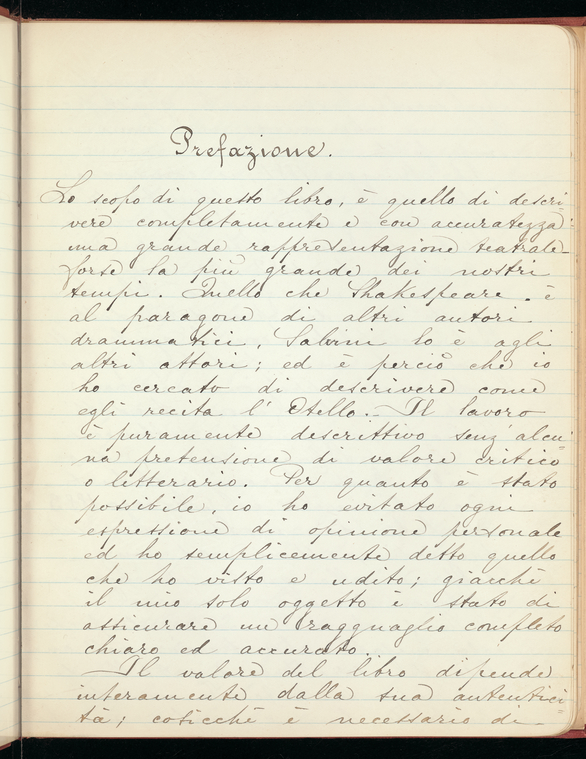 Prefazione.
Lo scopo di questo libro, è quello di descri-
vere completamente e con accuratezza
una grande rappresentazione teatrale
forse la più grande dei nostri
tempi. Quello che Shakespeare è
al paragone di altri autori
drammatici, Salvini lo è agli
altri attori; ed è perciò che io
ho cercato di descrivere come
egli recita l'Otello. — Il lavoro
è puramente descrittivo senz'alcu-
na pretensione di valore critico
o litterario. Per quanto è stato
possibile, io ho evitato ogni
espressione di opinione personale
ed ho semplicemente detto quello
che ho visto e udito; giacchè
il mio solo oggetto è stato di
assicurare un ragguaglio completo
chiaro ed accurato.
Il valore del libro dipende
interamente dalla sua autentici-
tà; cosicchè è necessario di